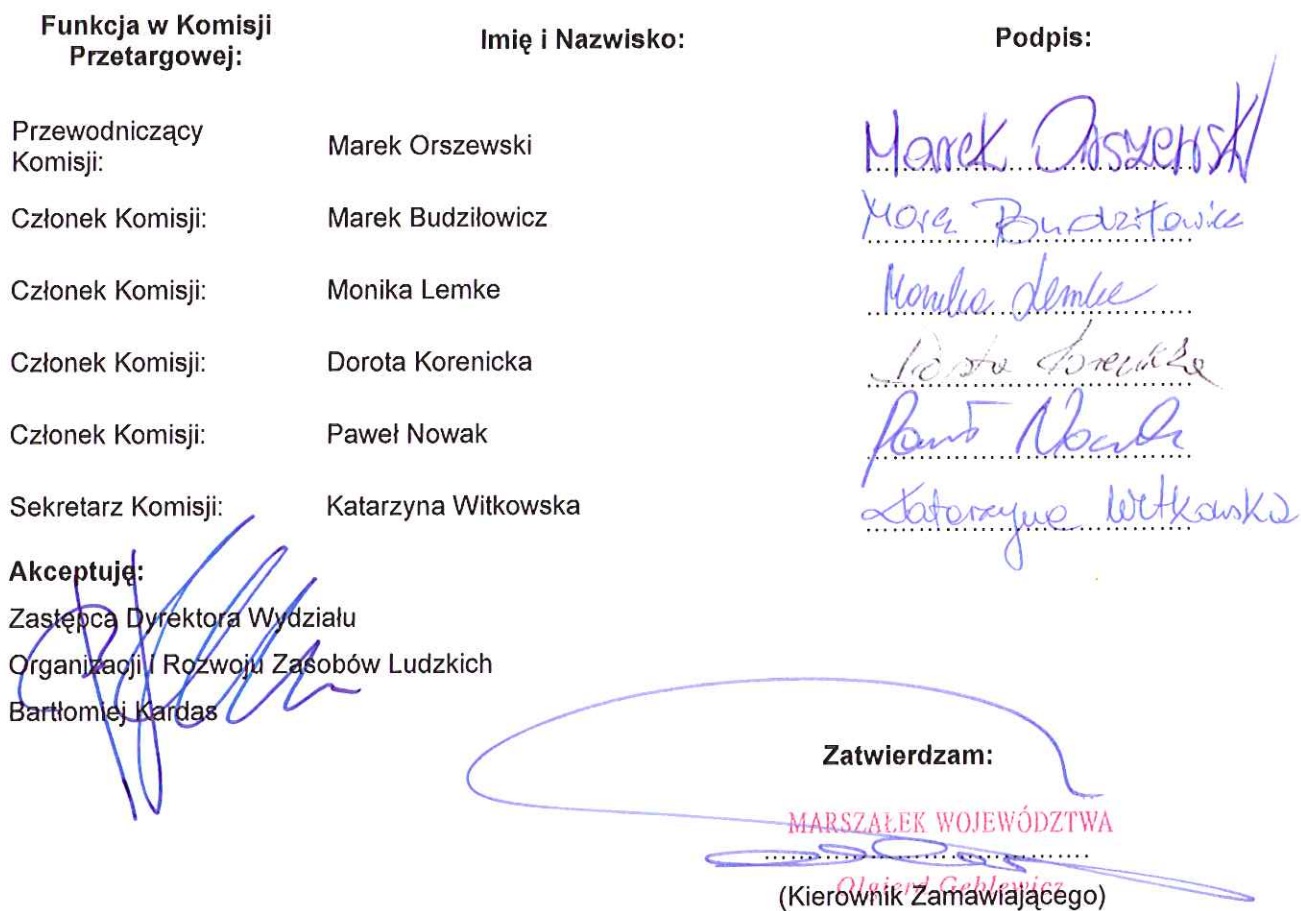 Funkcja w Komisji Przetargowej: Imię i Nazwisko: Podpis:
Przewodniczący Komisji: Marek Orszewski Marek Orszewski
Członek Komisji: Marek Budziłowicz Marek Budziłowicz
Członek Komisji: Monika Lemke Monika Lemke
Członek Komisji: Dorota Korenicka Dorota Korenicka
Członek Komisji: Paweł Nowak Paweł Nowak
Sekretarz Komisji: Katarzyna Witkowska Katarzyna Witkowska
Akceptuję:
Zastępca Dyrektora Wydziału
Organizacji i Rozwoju Zasobów Ludzkich
Bartłomiej Kardas
Zatwierdzam:
MARSZAŁEK WOJEWÓDZTWA
Olgierd Geblewicz
(Kierownik Zamawiającego)